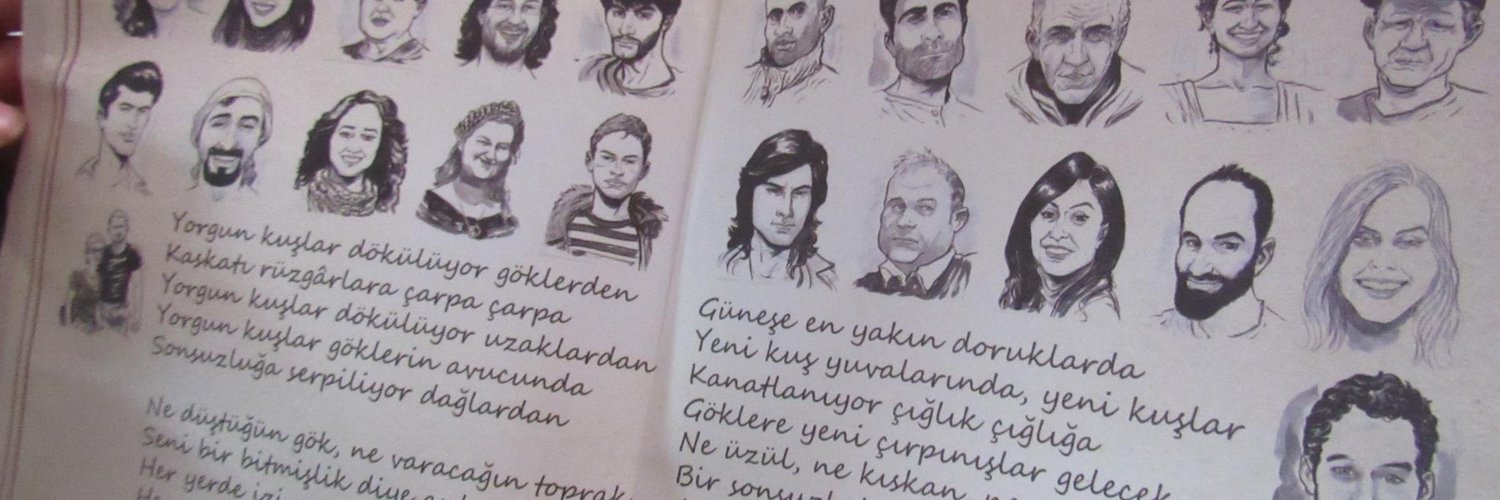 Yorgun kuşlar dökülüyor göklerden
Kaskatı rüzgârlara çarpa çarpa
Yorgun kuşlar dökülüyor uzaklardan
Yorgun kuşlar göklerin avucunda
Sonsuzluğa serpiliyor dağlardan
Ne düştüğün gök, ne varacağın toprak
Seni bir bitmişlik diye
Her yerde
Güneşe en yakın doruklarda
Yeni kuş yuvalarında, yeni kuşlar
Kanatlanıyor çığlık çığlığa
Göklere yeni çırpınışlar gelecek
Ne üzül, ne kıskan
Bir